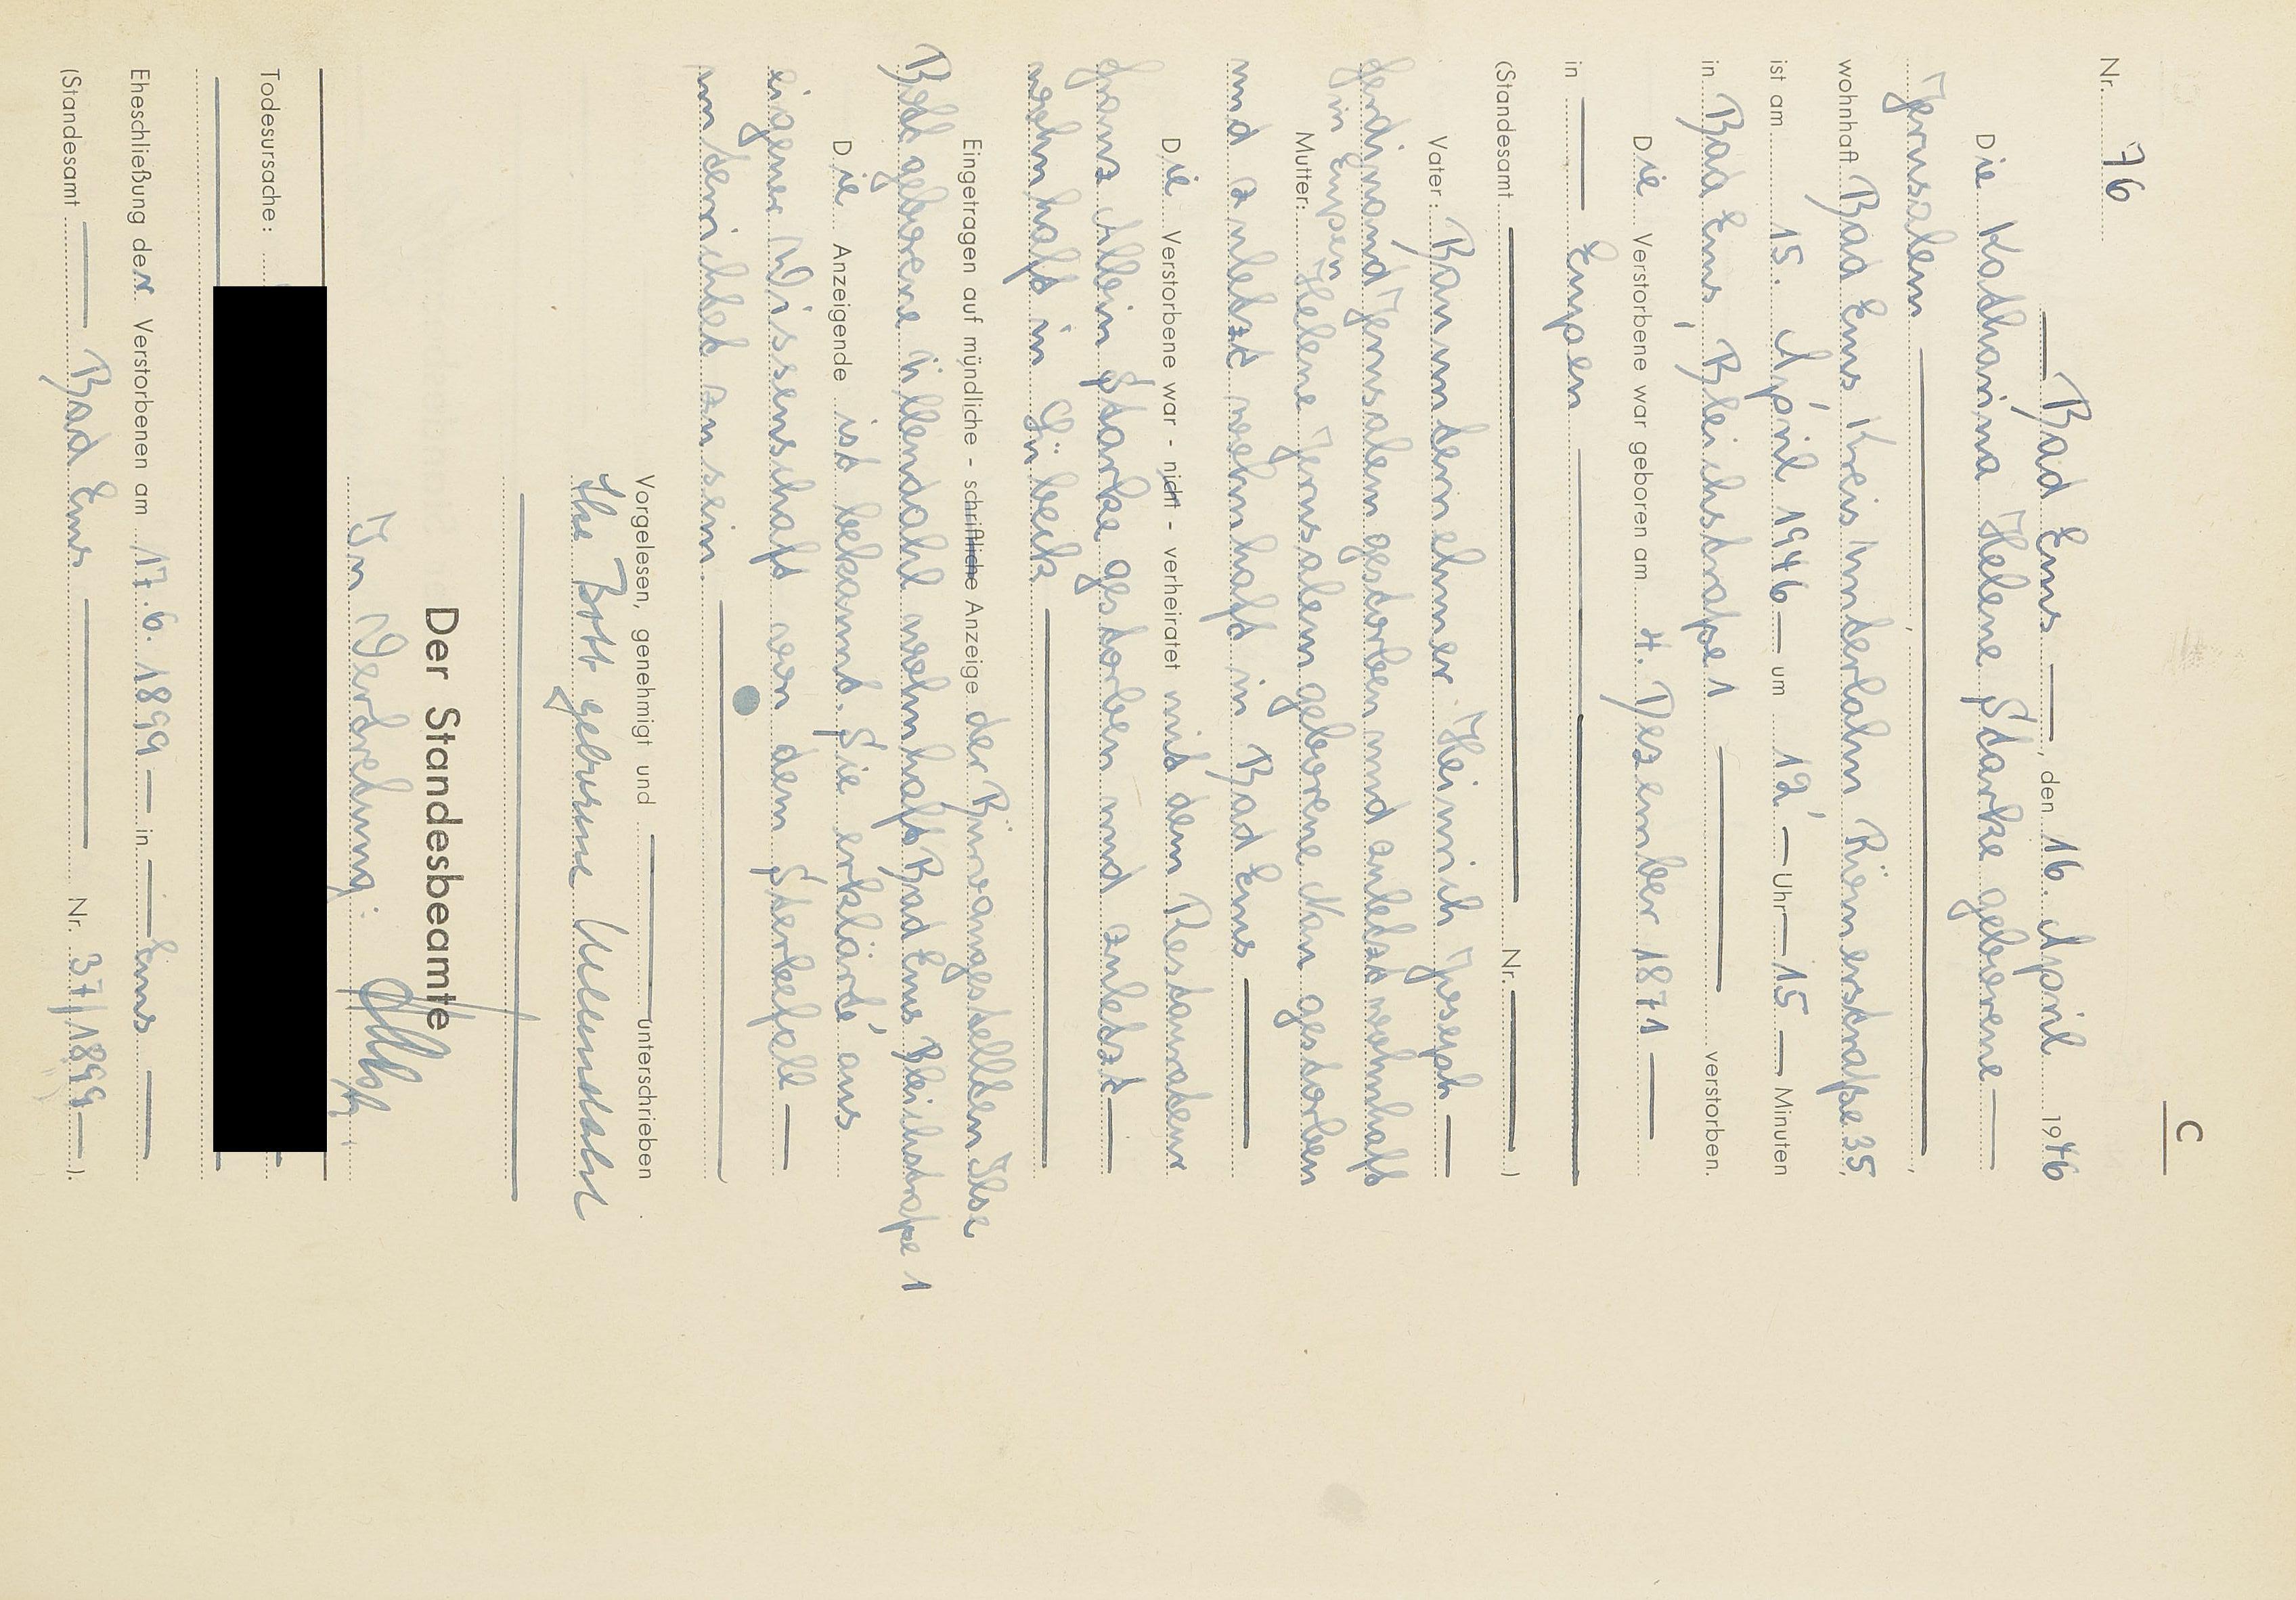 C
Nr. 76
Bad Ems, den 16. April 1946
Die Katharina Helene Starke geborene
Jerusalem
wohnhaft Bad Ems Kreis Unterlahn Römerstraße 35,
ist am 15. April 1946 um 12 Uhr 15 Minuten
in Bad Ems, Bleichstraße 1 verstorben.
Die Verstorbene war geboren am 4. Dezember 1871
in Eupen
(Standesamt Nr. )
Vater: Bauunternehmer Heinrich Joseph
Ferdinand Jerusalem gestorben und zuletzt wohnhaft
in Eupen
Mutter: Helene Jerusalem geborene gestorben
und zuletzt wohnhaft in Bad Ems
Die Verstorbene war - nicht - verheiratet mit dem Restaurateur
Franz Alwin Starke gestorben und zuletzt
wohnhaft in Lübeck
Eingetragen auf mündliche - schriftliche Anzeige der Büroangestellten Ilse
Bott geborene Üllendahl wohnhaft Bad Ems Bleichstraße 1
Die Anzeigende ist bekannt. Sie erklärte, aus
eigener Wissenschaft von dem Sterbefall
unterrichtet zu sein.
Vorgelesen, genehmigt und unterschrieben
Ilse Bott geborene Üllendahl
Der Standesbeamte
In Vertretung:
Todesursache:
Eheschließung der Verstorbenen am 17.6.1899 in Ems
(Standesamt Bad Ems Nr. 37/1899).